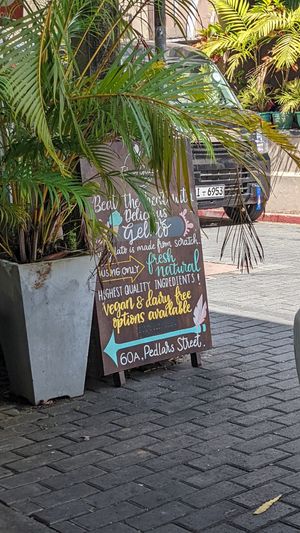 Beat the heat with
Delicious
Gelato
Gelato is made from scratch,
USING ONLY fresh
natural
HIGHEST QUALITY INGREDIENTS!
vegan & dairy free
options available
60A, Pedlars Street.
I-6953